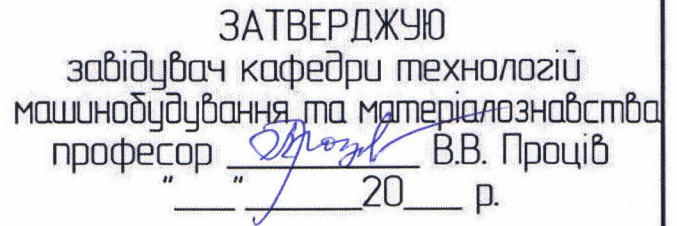 ЗАТВЕРДЖУЮ
завідувач кафедри технологій
машинобудування та матеріалознавства
професор ____________ В.В. Проців
"___"________20___ р.